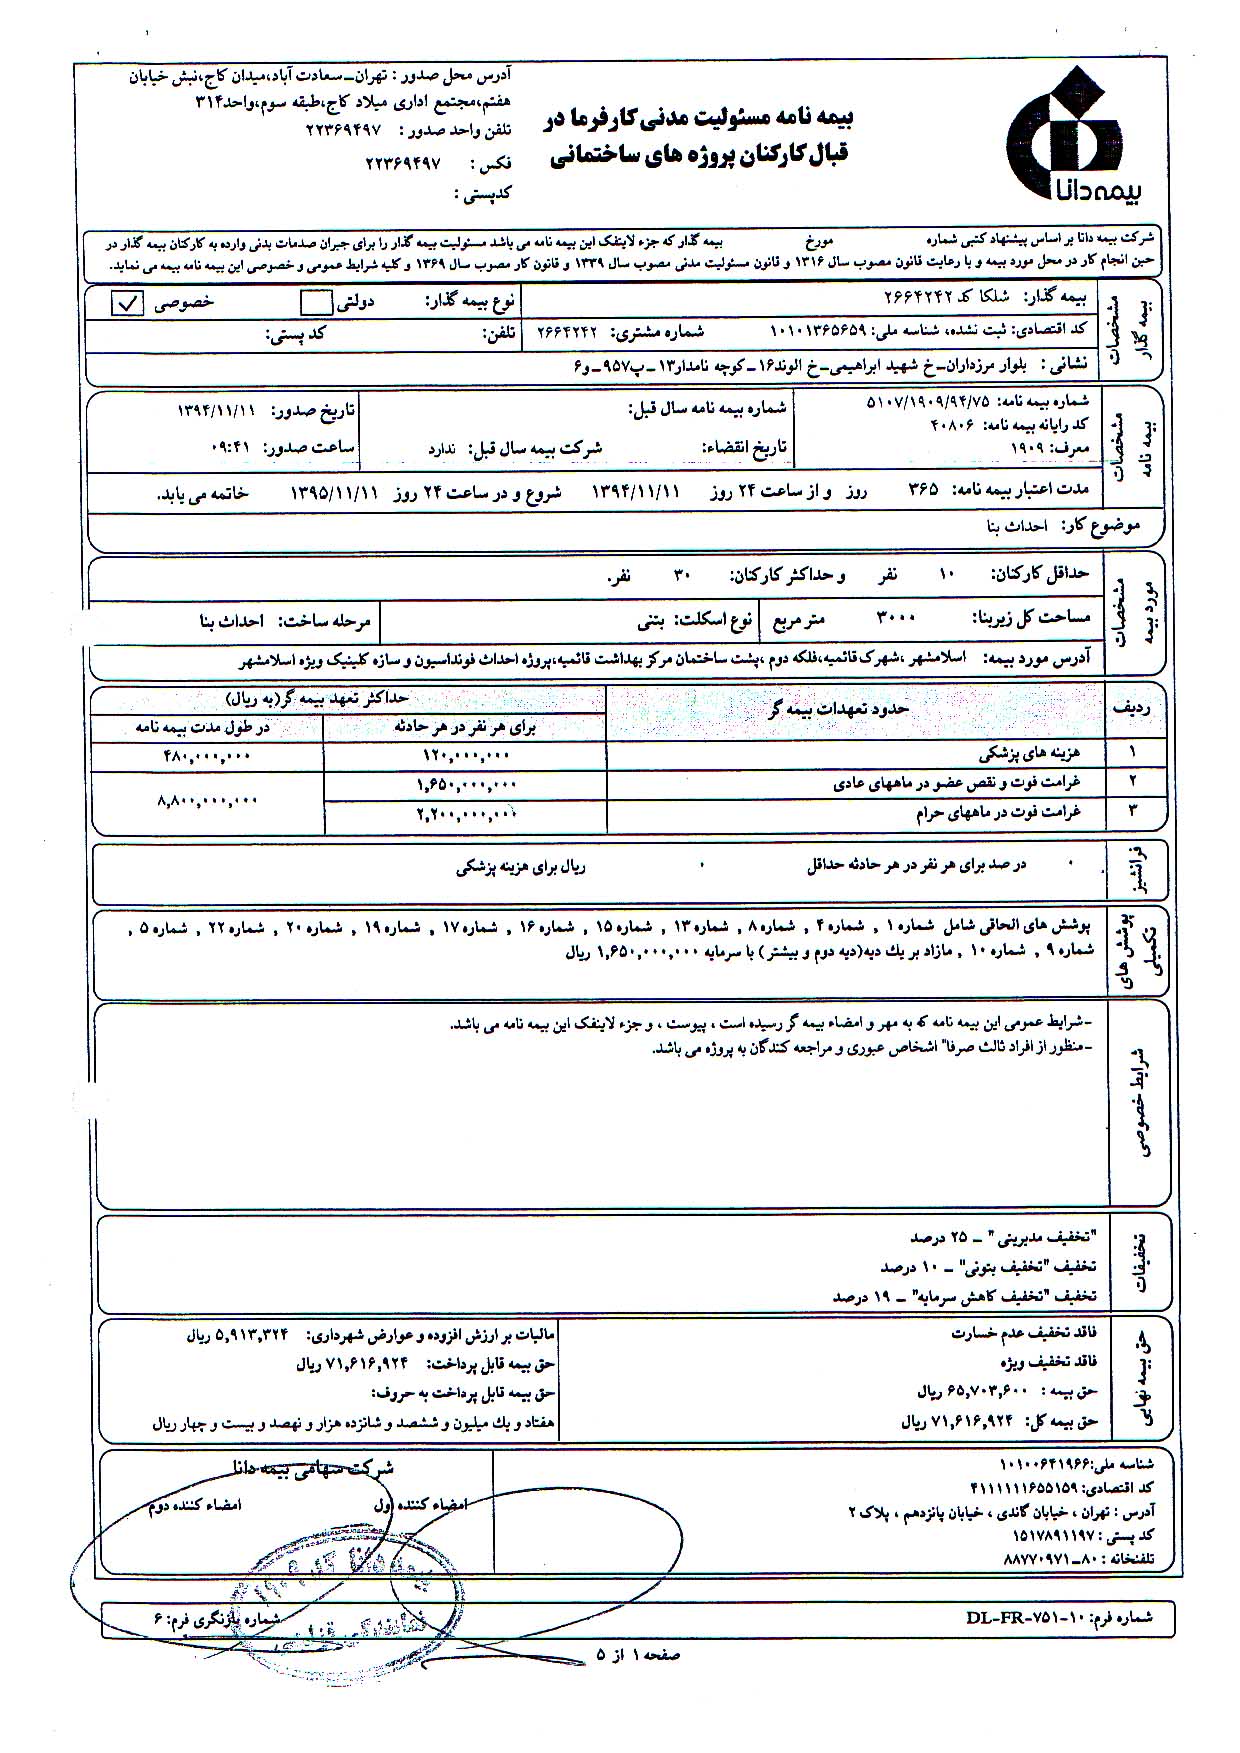 بیمه دانا
بیمه نامه مسئولیت مدنی کارفرما در
قبال کارکنان پروژه های ساختمانی
آدرس محل صدور : تهران-سعادت آباد،میدان کاج،نبش خیابان
هفتم،مجتمع اداری میلاد کاج،طبقه سوم،واحد۳۱۴
تلفن واحد صدور : ۲۲۳۶۹۴۹۷
فکس : ۲۲۳۶۹۴۹۷
کدپستی :
شرکت بیمه دانا بر اساس پیشنهاد کتبی شماره مورخ بیمه گذار که جزء لاینفک این بیمه نامه می باشد مسئولیت بیمه گذار را برای جبران صدمات بدنی وارده به کارکنان بیمه گذار در
حین انجام کار در محل مورد بیمه و با رعایت قانون مصوب سال ۱۳۱۶ و قانون مسئولیت مدنی مصوب سال ۱۳۳۹ و قانون کار مصوب سال ۱۳۶۹ و کلیه شرایط عمومی و خصوصی این بیمه نامه بیمه می نماید.
مشخصات بیمه گذار
بیمه گذار: شلکا کد ۲۶۶۴۲۴۲ نوع بیمه گذار: دولتی خصوصی ✓
کد اقتصادی: ثبت نشده، شناسه ملی: ۱۰۱۰۱۳۶۵۶۵۹ شماره مشتری: ۲۶۶۴۲۴۲ تلفن: کد پستی:
نشانی : بلوار مرزداران-خ شهید ابراهیمی-خ الوند۱۶-کوچه نامدار۱۳-پ۹۵۷-و۶
مشخصات بیمه نامه
شماره بیمه نامه: ۵۱۰۷/۱۹۰۹/۹۴/۷۵ شماره بیمه نامه سال قبل: تاریخ صدور: ۱۳۹۴/۱۱/۱۱
کد رایانه بیمه نامه: ۴۰۸۰۶
معرف: ۱۹۰۹ تاریخ انقضاء: شرکت بیمه سال قبل: ندارد ساعت صدور: ۰۹:۴۱
مدت اعتبار بیمه نامه: ۳۶۵ روز و از ساعت ۲۴ روز ۱۳۹۴/۱۱/۱۱ شروع و در ساعت ۲۴ روز ۱۳۹۵/۱۱/۱۱ خاتمه می یابد.
موضوع کار: احداث بنا
مشخصات مورد بیمه
حداقل کارکنان: ۱۰ نفر و حداکثر کارکنان: ۳۰ نفر.
مساحت کل زیربنا: ۳۰۰۰ متر مربع نوع اسکلت: بتنی مرحله ساخت: احداث بنا
آدرس مورد بیمه: اسلامشهر ،شهرک قائمیه،فلکه دوم ،پشت ساختمان مرکز بهداشت قائمیه،پروژه احداث فونداسیون و سازه کلینیک ویژه اسلامشهر
ردیف حدود تعهدات بیمه گر حداکثر تعهد بیمه گر(به ریال)
برای هر نفر در هر حادثه در طول مدت بیمه نامه
۱ هزینه های پزشکی ۱۲۰,۰۰۰,۰۰۰ ۴۸۰,۰۰۰,۰۰۰
۲ غرامت فوت و نقص عضو در ماههای عادی ۱,۶۵۰,۰۰۰,۰۰۰ ۸,۸۰۰,۰۰۰,۰۰۰
۳ غرامت فوت در ماههای حرام ۲,۲۰۰,۰۰۰,۰۰۰
فرانشیز
۰ در صد برای هر نفر در هر حادثه حداقل ۰ ریال برای هزینه پزشکی
پوشش های تکمیلی
پوشش های الحاقی شامل شماره ۱ , شماره ۴ , شماره ۸ , شماره ۱۳ , شماره ۱۵ , شماره ۱۶ , شماره ۱۷ , شماره ۱۹ , شماره ۲۰ , شماره ۲۲ , شماره ۵ ,
شماره ۹ , شماره ۱۰ , مازاد بر یك دیه(دیه دوم و بیشتر) با سرمایه ۱,۶۵۰,۰۰۰,۰۰۰ ریال
شرایط خصوصی
-شرایط عمومی این بیمه نامه که به مهر و امضاء بیمه گر رسیده است ، پیوست ، و جزء لاینفک این بیمه نامه می باشد.
-منظور از افراد ثالث صرفا" اشخاص عبوری و مراجعه کندگان به پروژه می باشد.
تخفیفات
"تخفیف مدیریتی" - ۲۵ درصد
تخفیف "تخفیف بتونی" - ۱۰ درصد
تخفیف "تخفیف کاهش سرمایه" - ۱۹ درصد
حق بیمه نهایی
فاقد تخفیف عدم خسارت مالیات بر ارزش افزوده و عوارض شهرداری: ۵,۹۱۳,۳۲۴ ریال
فاقد تخفیف ویژه حق بیمه قابل پرداخت: ۷۱,۶۱۶,۹۲۴ ریال
حق بیمه : ۶۵,۷۰۳,۶۰۰ ریال حق بیمه قابل پرداخت به حروف:
حق بیمه کل: ۷۱,۶۱۶,۹۲۴ ریال هفتاد و یك میلیون و ششصد و شانزده هزار و نهصد و بیست و چهار ریال
شناسه ملی:۱۰۱۰۰۶۴۱۹۶۶ شرکت سهامی بیمه دانا
کد اقتصادی: ۴۱۱۱۱۱۱۶۵۵۱۵۹ امضاء کننده اول امضاء کننده دوم
آدرس : تهران ، خیابان گاندی ، خیابان پانزدهم ، پلاک ۲
کد پستی : ۱۵۱۷۸۹۱۱۹۷
تلفنخانه : ۸۰-۸۸۷۷۰۹۷۱
بیمه دانا کد ۱۹۰۹
شماره فرم: DL-FR-۷۵۱-۱۰ شماره بازنگری فرم: ۶
صفحه ۱ از ۵